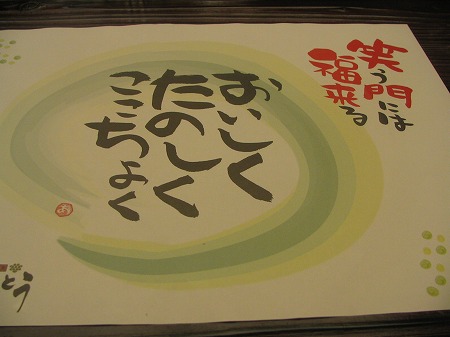 笑う門には
福来る
おいしく
たのしく
ここちよく
とう